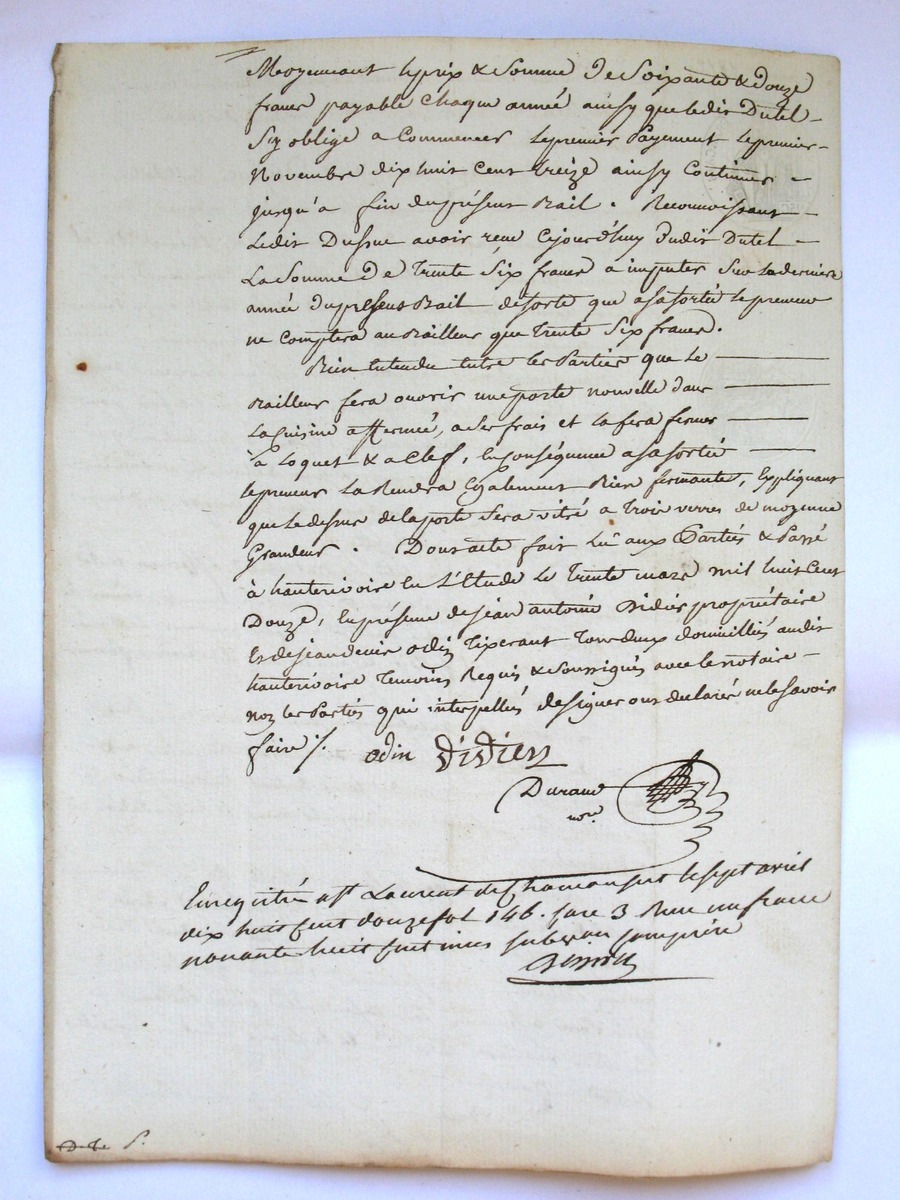 Moyennant le prix & Somme de Soixante & douze
francs payable Chaque année ainsy que ledit Dutel
Sy oblige a Commencer le premier Payement le premier
Novembre dix huit Cent treize ainsy Continuer
jusqu'a fin du présent Bail. Reconnoissant
Ledit Dussuc avoir reçu Cejourd'huy dudit Dutel
La Somme De Trente Six francs a imputer Sur la derniere
année du présent Bail de sorte que a sa sortie le preneur
ne Comptera au Bailleur que Trente Six francs.
Bien Entendu Entre les Parties que Le
Bailleur fera ouvrir une porte nouvelle dans
La Cuisine affermée, a ses frais et la fera fermer
à Loquet & a Clef, En Conséquence a sa sortie
le preneur La Rendra Egalement Bien fermante, Expliquant
que le dessus de la porte Sera vitré a trois verres de moyenne
Grandeur. Dont acte fait lu aux Parties & Passé
à hauterivoire En L'Etude Le Trente mars mil huit Cent
Douze, En présence de jean antoine Didier propriétaire
Et de jean denis odin Tixerant Tous deux domiciliés audit
hauterivoire Temoins Requis & Soussignés avec le notaire
non les Parties qui interpellés de signer ont declarés ne le Savoir
faire /.
odin Didier
Durand
nore
Enregistré a St Laurent de Chamousset le sept avril
dix huit cent douze fol 146. case 3 Reçu un franc
nonante huit centimes subvon comprise